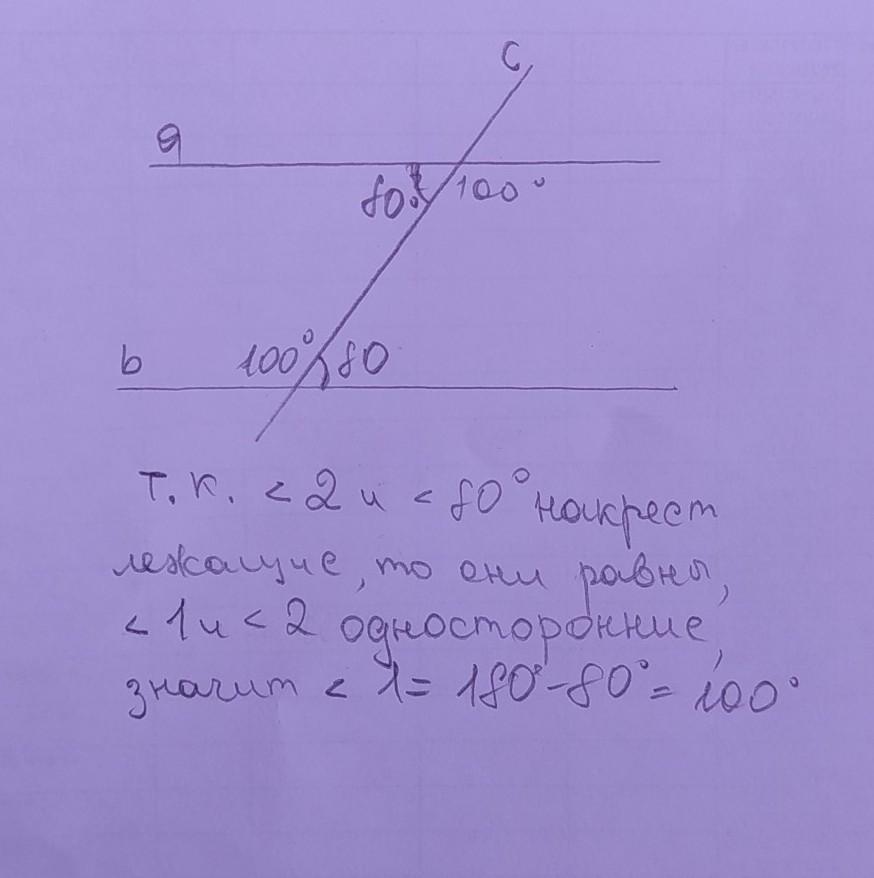 c
a
80° 100°
b 100° 80
т.к. < 2 и < 80° накрест
лежащие, то они равны,
< 1 и < 2 односторонние,
значит < 1 = 180° - 80° = 100°